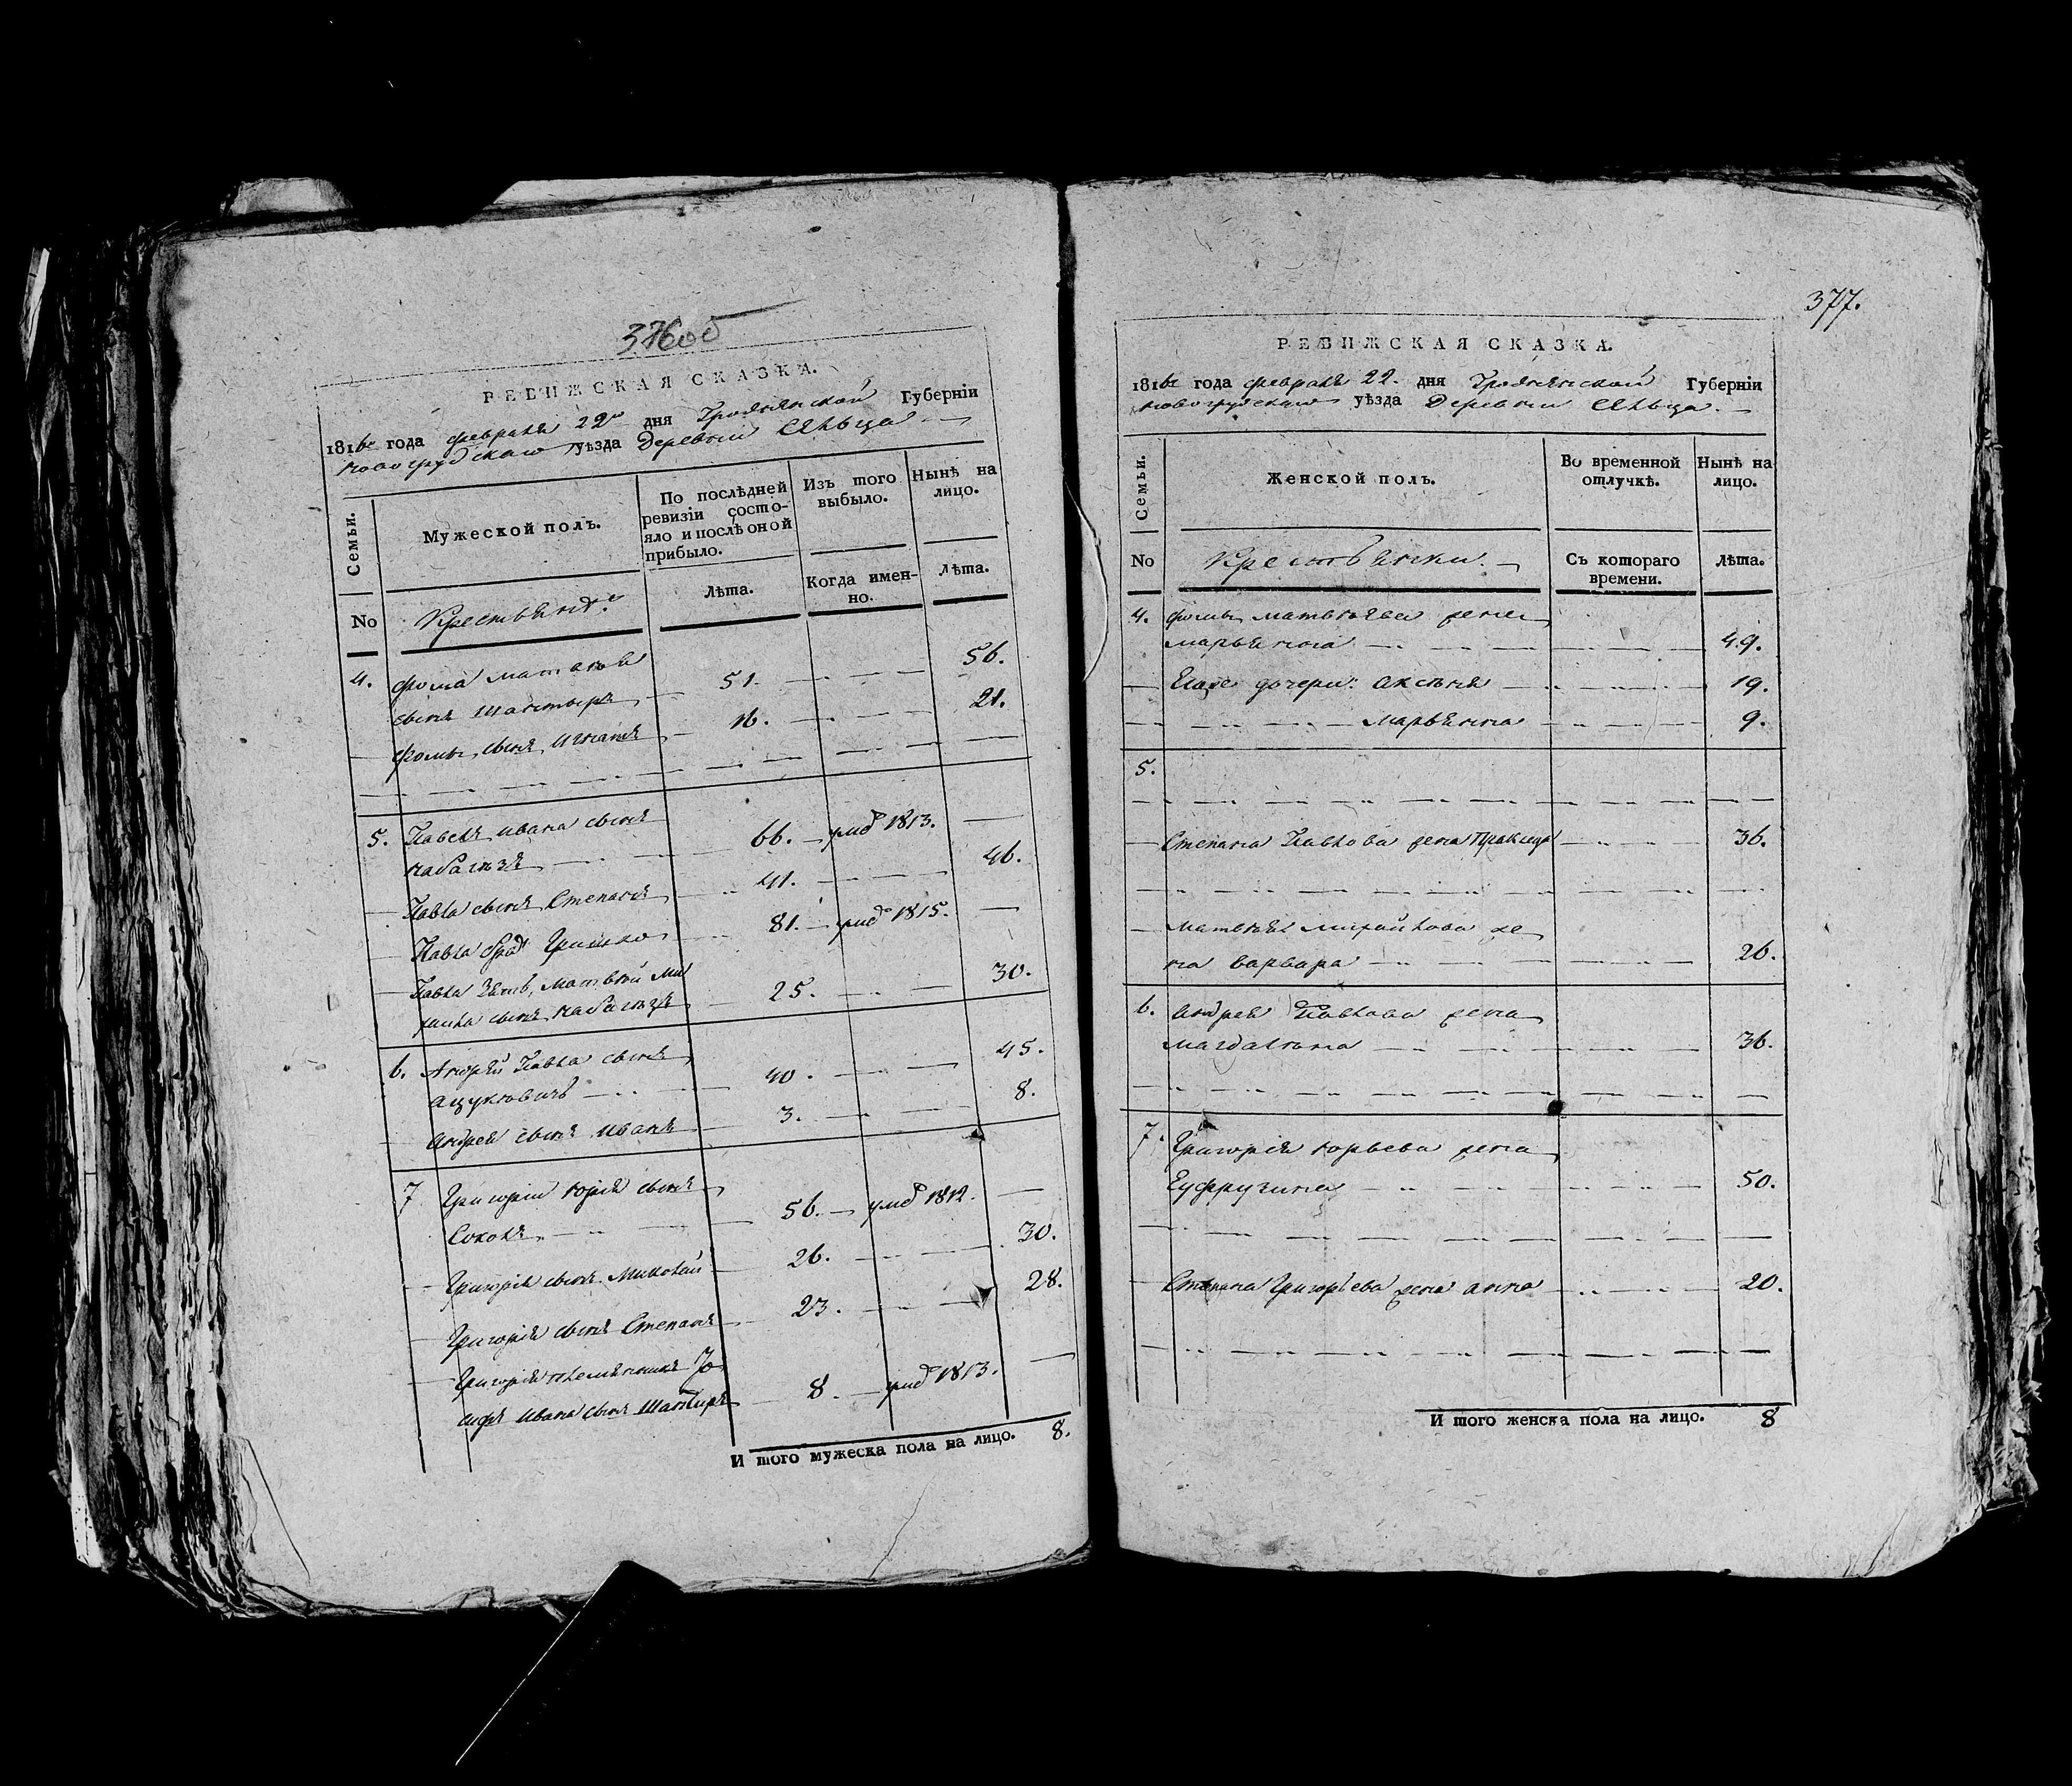 376об
РЕВИЖСКАЯ СКАЗКА.
1816го года февраля 22го дня Гродненской Губерніи
Новогрудскаго уѣзда Деревни Сѣльца
Семьи.
Мужеской полъ.
По послѣдней ревизіи состо-
яло и послѣ оной
прибыло.
Изъ того
выбыло.
Нынѣ на
лицо.
No
Крестьянъ
Лѣта.
Когда имен-
но.
Лѣта.
4. Фома Матвѣя
сынъ Шантыръ 51. 56.
Фомы сынъ Игнатъ 16. 21.
5. Павелъ Ивана сынъ
66. умъ 1813.
Павла сынъ Степанъ 41. 46.
Павла братъ Гришко 81. умъ 1815.
Павла зять Матвѣй Ми
хайла сынъ 25. 30.
6. Андрей Павла сынъ
40. 45.
Андрея сынъ Иванъ 3. 8.
7 Григорій Юрія сынъ
Соколъ 56. умъ 1812.
Григорія сынъ Миколай 26. 30.
Григорія сынъ Степанъ 23. 28.
Григорія племянникъ Іо
сифъ Ивана сынъ Шантыръ 8. умъ 1813.
И того мужеска пола на лицо. 8.
377.
РЕВИЖСКАЯ СКАЗКА.
1816го года февраля 22. дня Гродненской Губерніи
Новогрудскаго уѣзда Деревни Сѣльца.
Семьи.
Женской полъ.
Во временной
отлучкѣ.
Нынѣ на
лицо.
No
Крестьянки.
Съ котораго
времени.
Лѣта.
4. Фомы Матвѣева жена
Марьянна 49.
дочери: Аксѣня 19.
Марьянна 9.
5.
Степана Павлова жена Пракседа 36.
Матвѣя Михайлова же
на Варвара 26.
6. Андрея Павлова жена
Магдалѣна 36.
7. Григорія Юрьева жена
Еуфрузина 50.
Степана Григорьева жена Анна 20.
И того женска пола на лицо. 8